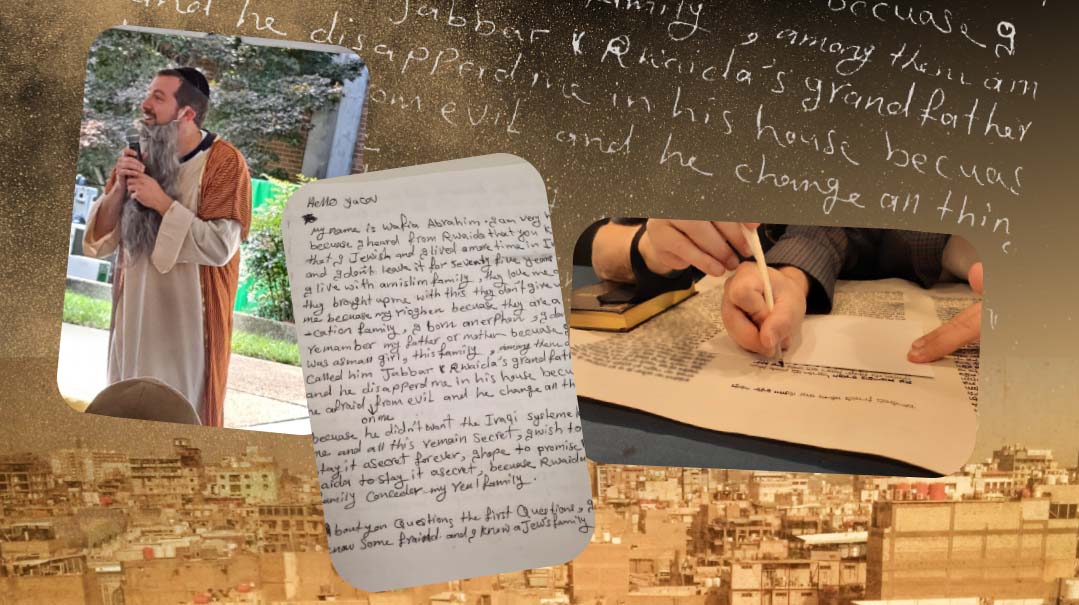 family becuase g
, among them am
Jabbar & Rwaida's grandfather
and he disapperd me in his house becuas
om evil and he change all thin
Hello yacov
My name is Wafia Abrahim. I am very h
becuase I heard from Rwaida that you
that I Jewish and I lived amore time in I
and I don't leave it for seventy five years
I live with amislim family, they love me
they brought up me with this they don't give
me becuase my righen becuase they are a
cation family, I born an erphan, I do
remember my father or mothem becuase
was a small girl, this family, among them
called him Jabbar & Rwaida's grandfath
and he disapperd me in his house becu
he afraid from evil and he change all th
on me
becuase he didn't want the Iraqi systeme
me and all this remain secret, I wish to
stay it asecret forever, I hope to promise
aida to stay it asecret, becuase Rwaida
amily Conceder my real family.
bout you Questions the first Questions, I
now some fraind and I know a Jews family